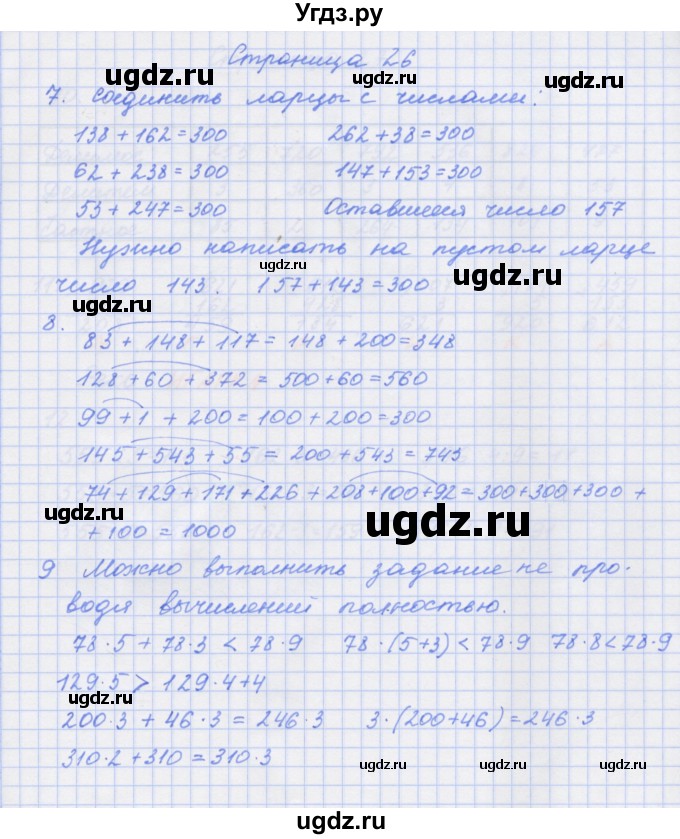 Угдз.ру
Страница 26
ugdz.ru ugdz.ru
7. Соединить ларцы с числами:
138 + 162 = 300 262 + 38 = 300
62 + 238 = 300 147 + 153 = 300
ugdz.ru ugdz.ru
53 + 247 = 300 Оставшееся число 157
Нужно написать на пустом ларце
ugdz.ru
число 143. 157 + 143 = 300
ugdz.ru ugdz.ru
8.
83 + 148 + 117 = 148 + 200 = 348
128 + 60 + 372 = 500 + 60 = 560
99 + 1 + 200 = 100 + 200 = 300
145 + 543 + 55 = 200 + 543 = 743
74 + 129 + 171 + 226 + 208 + 100 + 92 = 300 + 300 + 300 +
ugdz.ru ugdz.ru
+ 100 = 1000
9 Можно выполнить задание не про-
водя вычислений полностью.
78·5 + 78·3 < 78·9 78·(5+3) < 78·9 78·8 < 78·9
129·5 > 129·4+4
ugdz.ru
200·3 + 46·3 = 246·3 3·(200+46) = 246·3
310·2 + 310 = 310·3
ugdz.ru ugdz.ru ugdz.ru
ugdz.ru